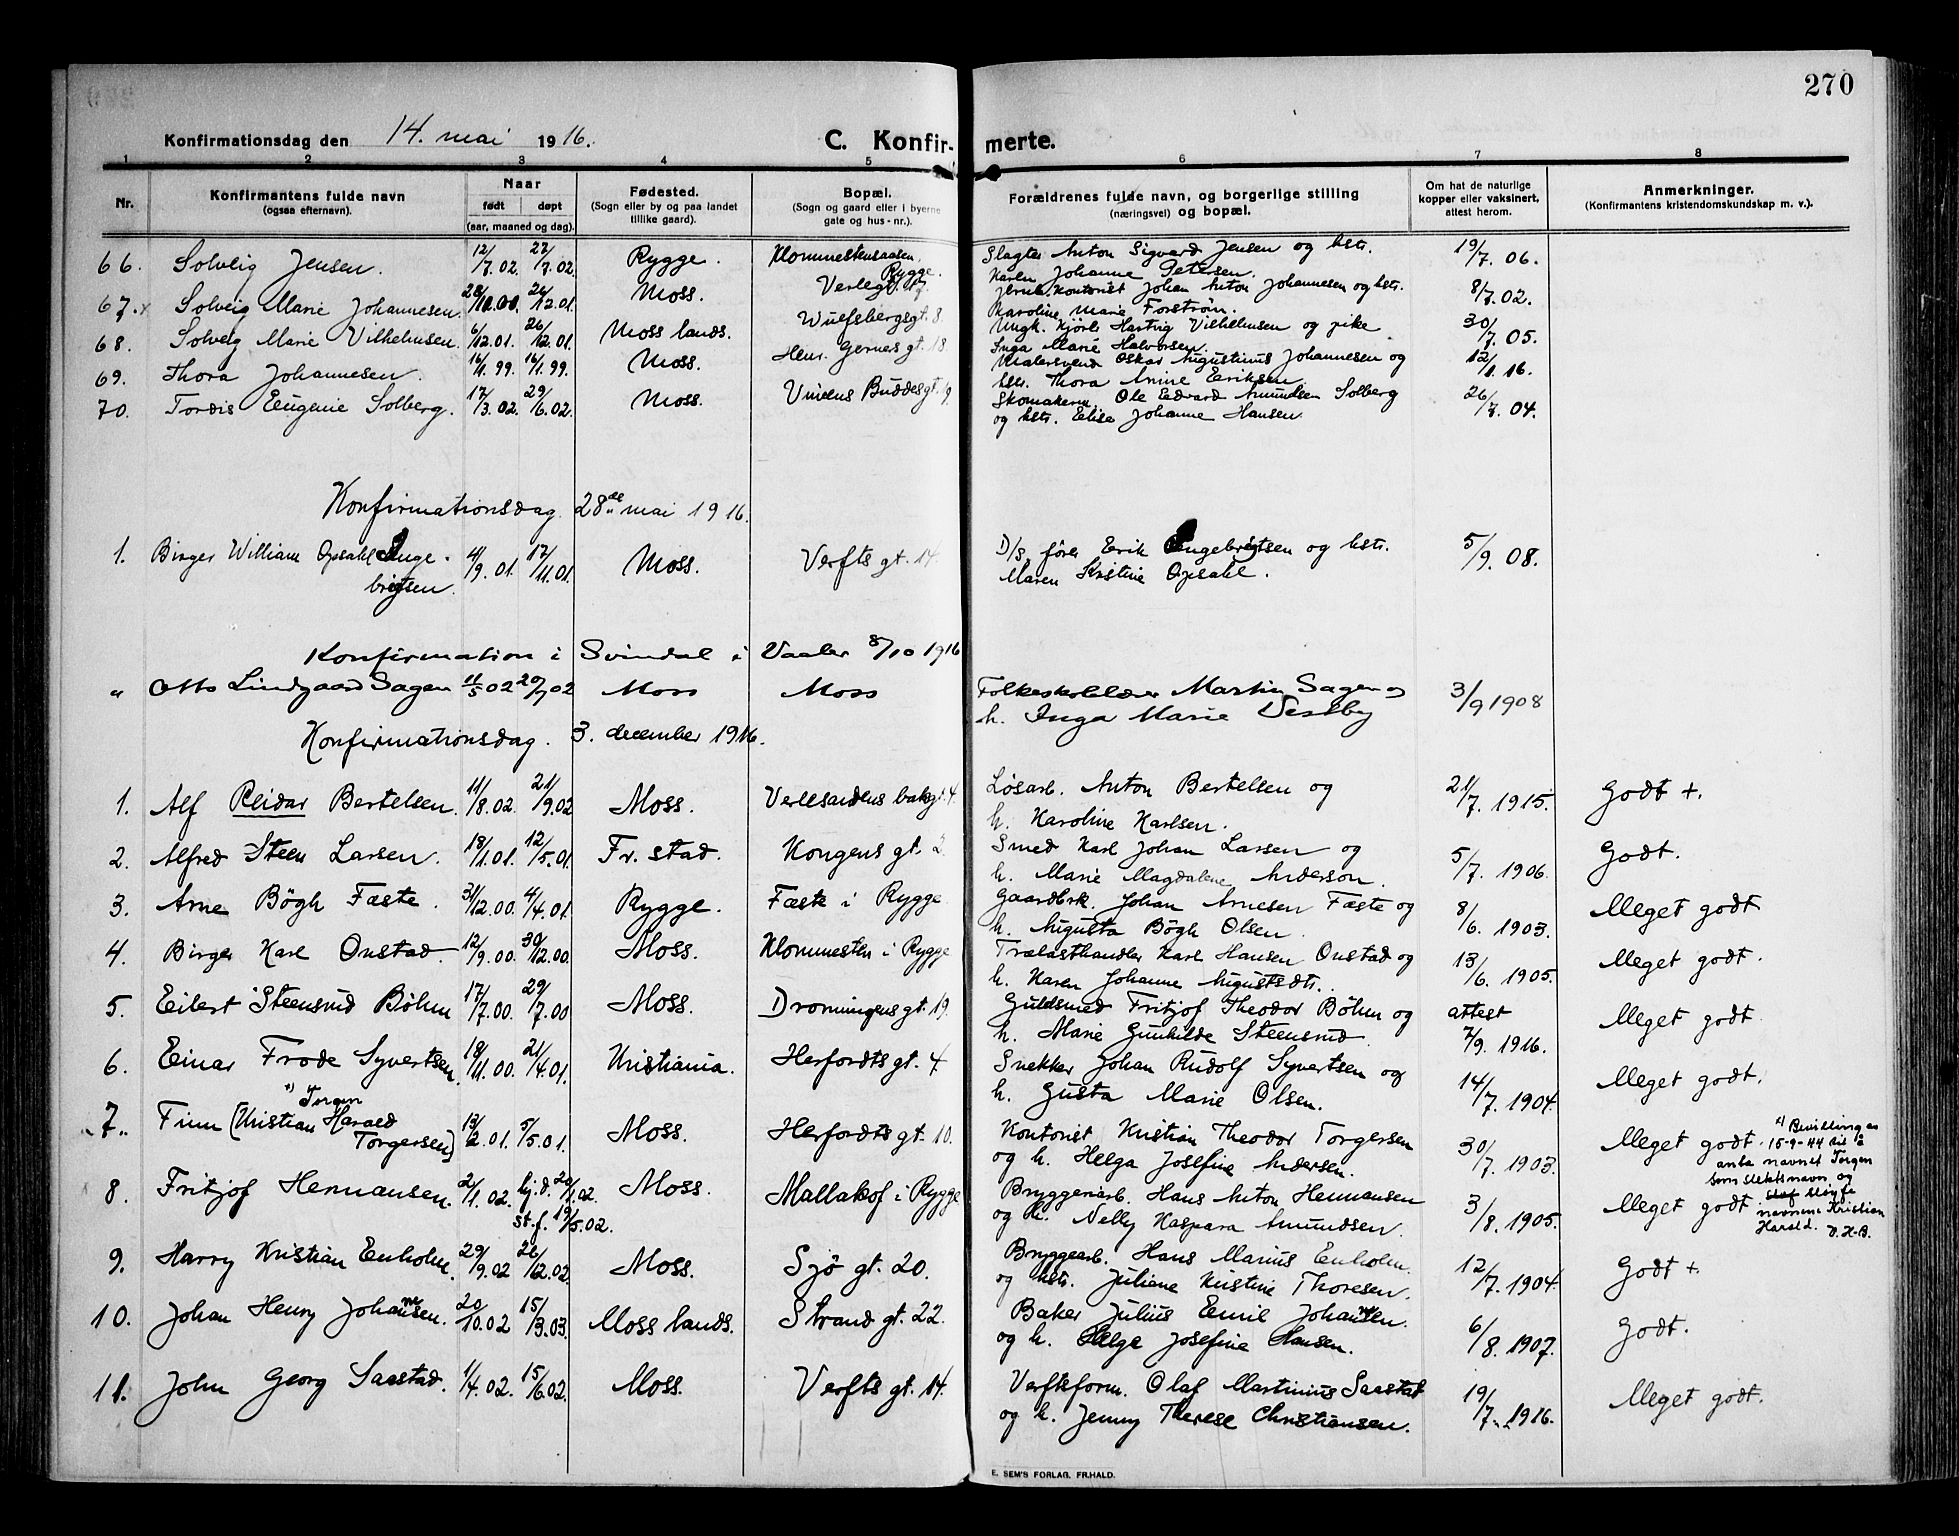 270
Konfirmationsdag den 14. mai 1916.
C. Konfirmerte.
1 2 3 4 5 6 7 8
Nr.
Konfirmantens fulde navn
(ogsaa efternavn).
Naar
født døpt
(aar, maaned og dag).
Fødested.
(Sogn eller by og paa landet
tillike gaard).
Bopæl.
(Sogn og gaard eller i byerne
gate og hus-nr.).
Forældrenes fulde navn, og borgerlige stilling
(næringsvei) og bopæl.
Om hat de naturlige
kopper eller vaksinert,
attest herom.
Anmerkninger.
(Konfirmantens kristendomskundskap m. v.).
66. Solveig Jensen. 12/7.02. 27/7.02. Rygge. Klommestensaasen, Rygge. Slagter Anton Sigvard Jensen og hstr. 19/7.06.
Karen Johanne Petersen.
67. Solveig Marie Johannesen. 26/12.01. Moss. Verlegt. 17 Johan Anton Johannesen og hstr. 8/7.02.
Karoline Marie Forström.
68. Solveig Marie Vilhelmsen. 6/12.01. 26/12.01. Moss lands. Wulfsbergsgt. 8 Ungk. Kjörl. Hartvig Vilhelmsen og pike 30/7.05.
Inga Marie Halvorsen.
69. Thora Johannesen. 16/1.99. Moss. Henr. Gernes gt. 18. Malersvend Oskar Augustinus Johannesen og 12/1.16.
hstr. Thora Anine Eriksen.
70. Tordis Eugenie Solberg. 17/3.02. 29/6.02. Moss. Vincens Buddesgt. 9. Skomakerm. Ole Edvard Amundsen Solberg 26/7.04.
og hstr. Elise Johanne Hansen.
Konfirmationsdag 28de mai 1916.
1. Birger William Opsahl Enge- 4/9.01. 17/11.01. Moss. Verfts gt. 14. D/s. förer Erik Engebrigtsen og hstr. 5/9.08.
brigtsen. Maren Kristine Opsahl.
Konfirmation i Svindal i Vaaler 8/10 1916
" Otto Lindgaard Sagen 11/5 02 20/7 02 Moss Moss Folkeskolelærer Martin Sagen og 3/9 1908
h. Inga Marie Vestby
Konfirmationsdag. 3. december 1916.
1. Alf Reidar Bertelsen. 11/8.02. 21/9.02 Moss. Verlesandens bakgt. 4. Løsarb. Anton Bertelsen og 21/7. 1915. Godt +.
h. Karoline Karlsen.
2. Alfred Steen Larsen. 18/1.01. 12/5.01. Fr.stad. Kongens gt. 2. Smed Karl Johan Larsen og 5/7. 1906. Godt.
h. Marie Magdalene Anderson.
3. Arne Bögh Fæste. 31/12.00. 4/4.01. Rygge. Fæste i Rygge Gaardbrk. Johan Arnesen Fæste og 8/6. 1903. Meget godt
h. Augusta Bögh Olsen.
4. Birger Karl Onstad. 12/9.00. 30/12.00. Moss. Klommesten i Rygge Trælasthandler Karl Hansen Onstad og 13/6. 1905. Meget godt.
h. Karen Johanne Augustsdtr.
5. Eilert Steensrud Böhm 17/7.00. 29/7.00 Moss. Dronningens gt. 19. Guldsmed Fritjof Theodor Böhm og attest
h. Marie Gunhilde Steensrud. 7/9. 1916. Meget godt
6. Einar Frode Syvertsen. 18/11.00. 21/4.01. Kristiania. Herfordts gt. 4 Snekker Johan Rudolf Syvertsen og 14/7. 1904. Meget godt.
h. Gusta Marie Olsen.
x) Torgen
7. Finn [Kristian Harald Torgersen] 13/2.01. 5/5.01. Moss. Herfordts gt. 10. Kontorist Kristian Theodor Torgersen 30/7. 1903. Meget godt.
og h. Helga Josefine Andersen.
x) Bevilling av
15-9-44 til å
anta navnet Torgen
som slektsnavn og
sløyfe
navnene Kristian
Harald.
8. Fritjof Hermansen. 2/1.02. hj.d. 20/1.02. Moss. Mallakof i Rygge Bryggeriarb. Hans Anton Hermansen 3/8. 1905. Meget godt
st.f. 19/5.02. og h. Nelly Kaspara Amundsen.
9. Harry Kristian Enholm. 29/9.02 26/12.02. Moss. Sjö gt. 20. Bryggearb. Hans Marius Enholm. 12/7. 1904. Godt +.
og hstr. Juliane Kristine Thoresen.
10. Johan Henry Johannesen. 20/10.02 15/3.03. Moss lands. Strand gt. 22. Baker Julius Emil Johannesen. 6/8. 1907. Godt.
og h. Helga Josefine Hansen.
11. John Georg Saastad. 1/4.02. 15/6.02. Moss. Verfts gt. 14. Verftsform. Olaf Martinius Saastad 19/7. 1916. Meget godt.
og h. Jenny Therese Christiansen.
E. SEM'S FORLAG. FR.HALD.